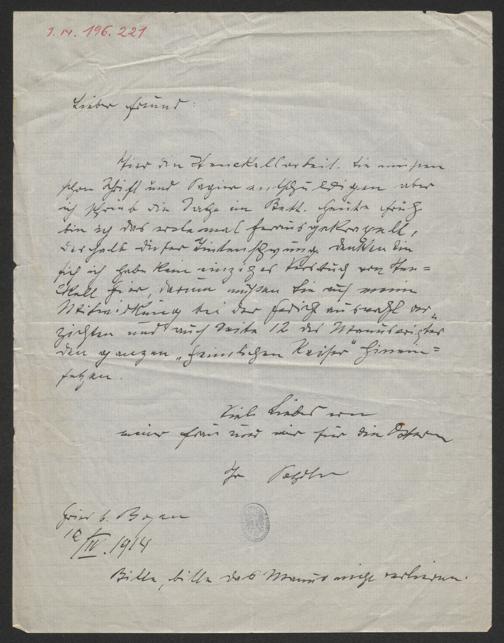 I.N. 196.221
Lieber Freund:
Hier die Henckellarbeit. Sie müssen
schon Schrift und Papier entschuldigen, aber
ich schrieb die Sache im Bett. Heute früh
bin ich das erstemal herausgekrapelt,
deshalb dieser Tintenschwung. Denken Sie
sich ich habe kein einziges Versbuch von Hen=
ckell hier, darum müssen Sie auf meine
Mitwirkung bei der Gedichtauswahl ver=
zichten und auf Seite 12 des Manuscriptes
den ganzen „heimlichen Kaiser" hinein=
setzen.
Viele Liebes von
meiner Frau und mir für die Ostern
Ihr
Gries b. Bozen
IV. 1914
Bitte, bitte das Manus nicht verlieren.